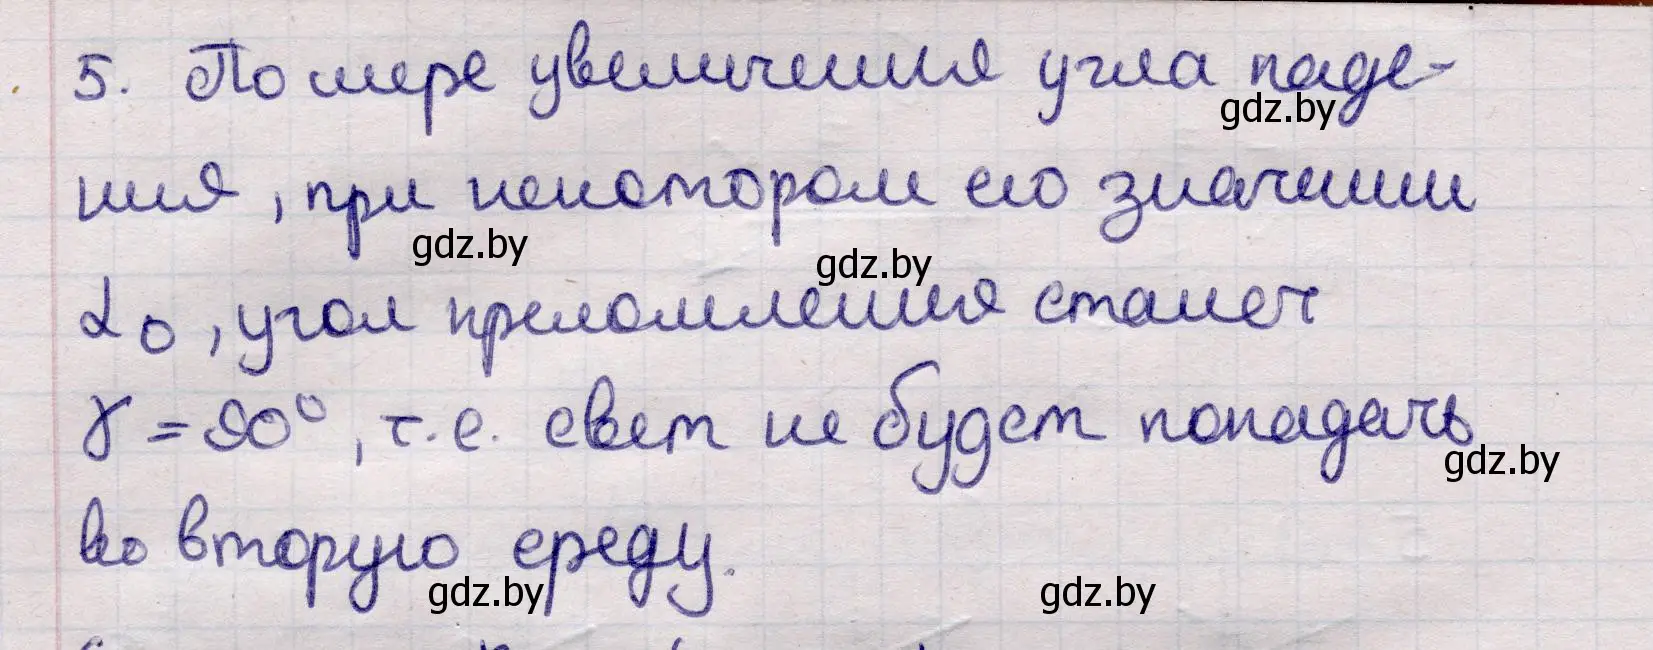 5. По мере увеличения угла паде-
gdz.by
ния, при некотором его значении
gdz.by
gdz.by
α₀, угол преломления станет
γ = 90°, т.е. свет не будет попадать
gdz.by
во вторую среду.
gdz.by
gdz.by